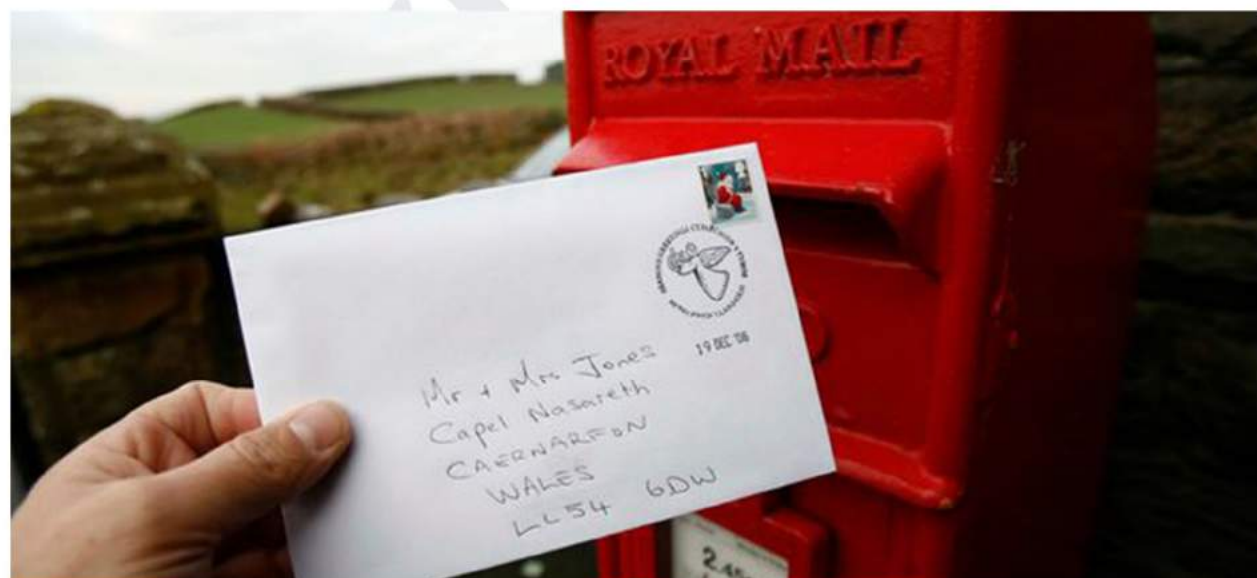 ROYAL MAIL
19 DEC '06
Mr + Mrs Jones
Capel Nasareth
CAERNARFON
WALES
LL54 6DW
2.45